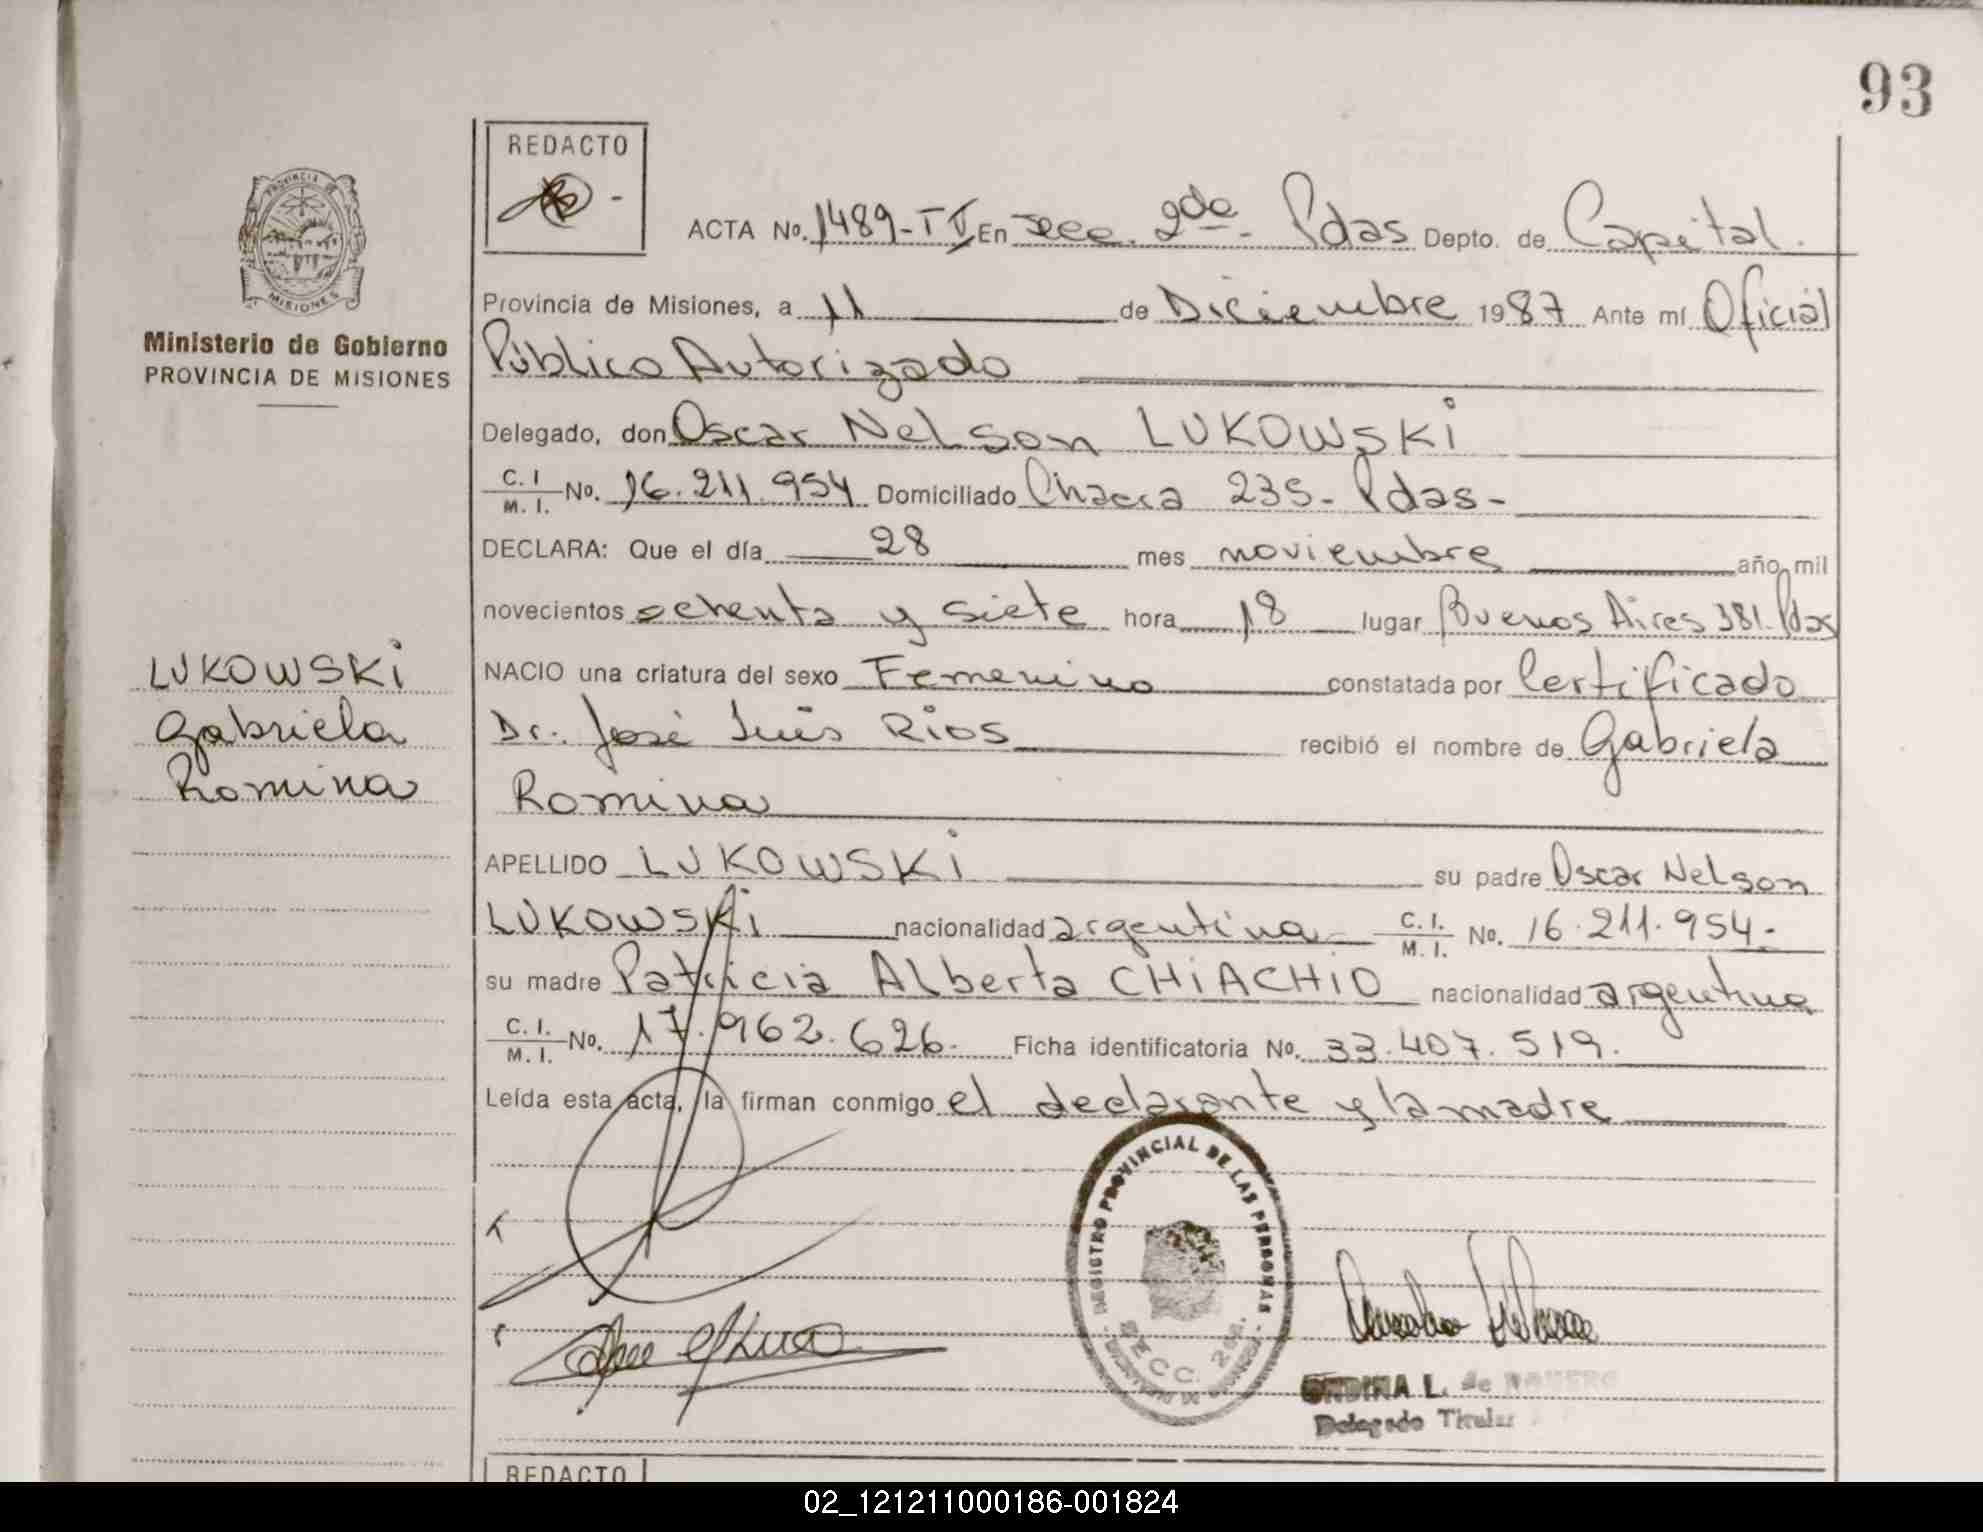 93
REDACTO
ACTA No. 1489-T V En Secc. 2da. Pdas Depto. de Capital.
PROVINCIA DE MISIONES
Provincia de Misiones, a 11 de Diciembre 1987 Ante mí Oficial
Ministerio de Gobierno
PROVINCIA DE MISIONES
Público Autorizado
Delegado, don Oscar Nelson LUKOWSKi
C. I. M. I. No. 16.211.954 Domiciliado Chacra 235- Pdas-
DECLARA: Que el día 28 mes noviembre año mil
novecientos ochenta y siete hora 18 lugar Buenos Aires 381. Pdas
NACIO una criatura del sexo Femenino constatada por Certificado
Dr. José Luis Rios recibió el nombre de Gabriela
Romina
LUKOWSKi
Gabriela
Romina
APELLIDO LUKOWSKi su padre Oscar Nelson
LUKOWSKi nacionalidad argentina C. I. M. I. No. 16.211.954-
su madre Patricia Alberta CHiACHiO nacionalidad argentina
C. I. M. I. No. 17.962.626. Ficha identificatoria No. 33.407.519.
Leída esta acta, la firman conmigo el declarante y la madre
REGISTRO PROVINCIAL DE LAS PERSONAS
SECC. 2da.
ONDINA L. de ROMERO
Delegado Titular
REDACTO
02_121211000186-001824